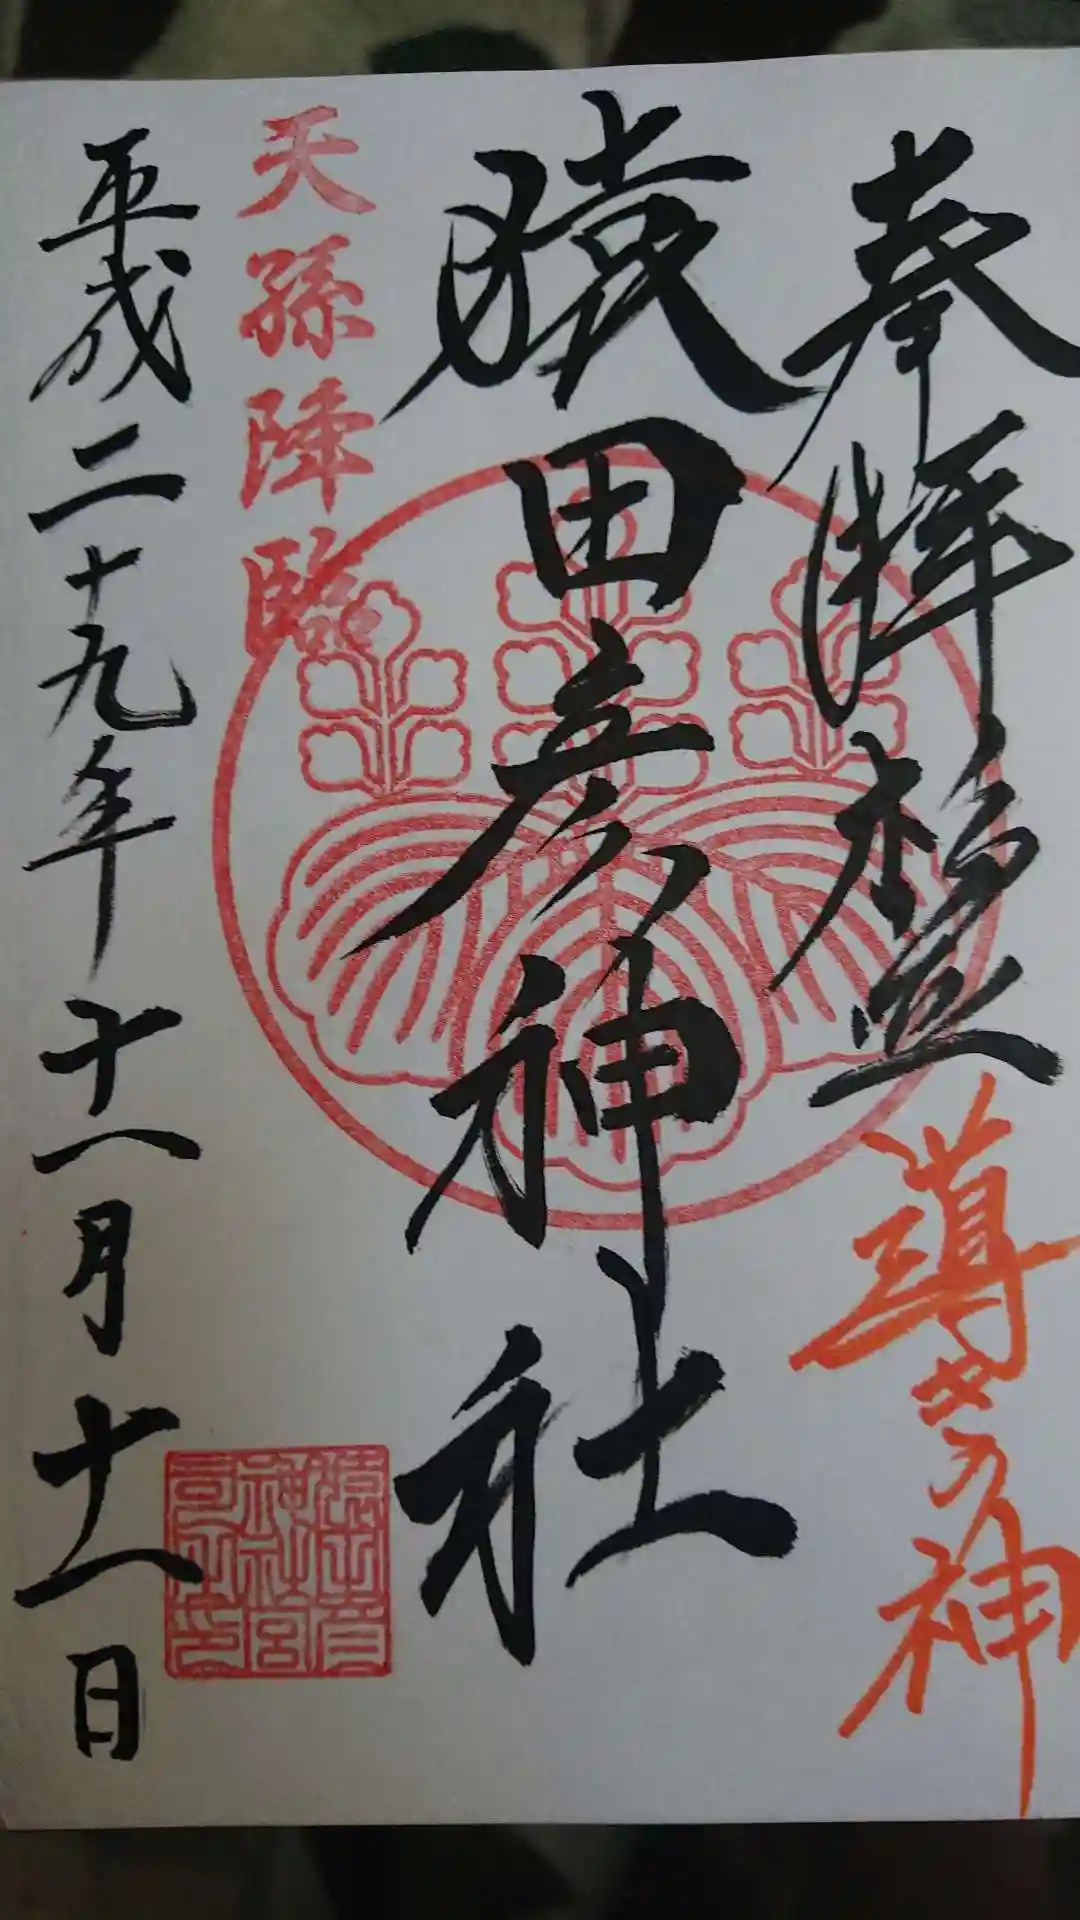 奉拝
導きの神
猿田彦神社
天孫降臨
猿田彦
神社宮
司之印
平成二十九年十一月十一日